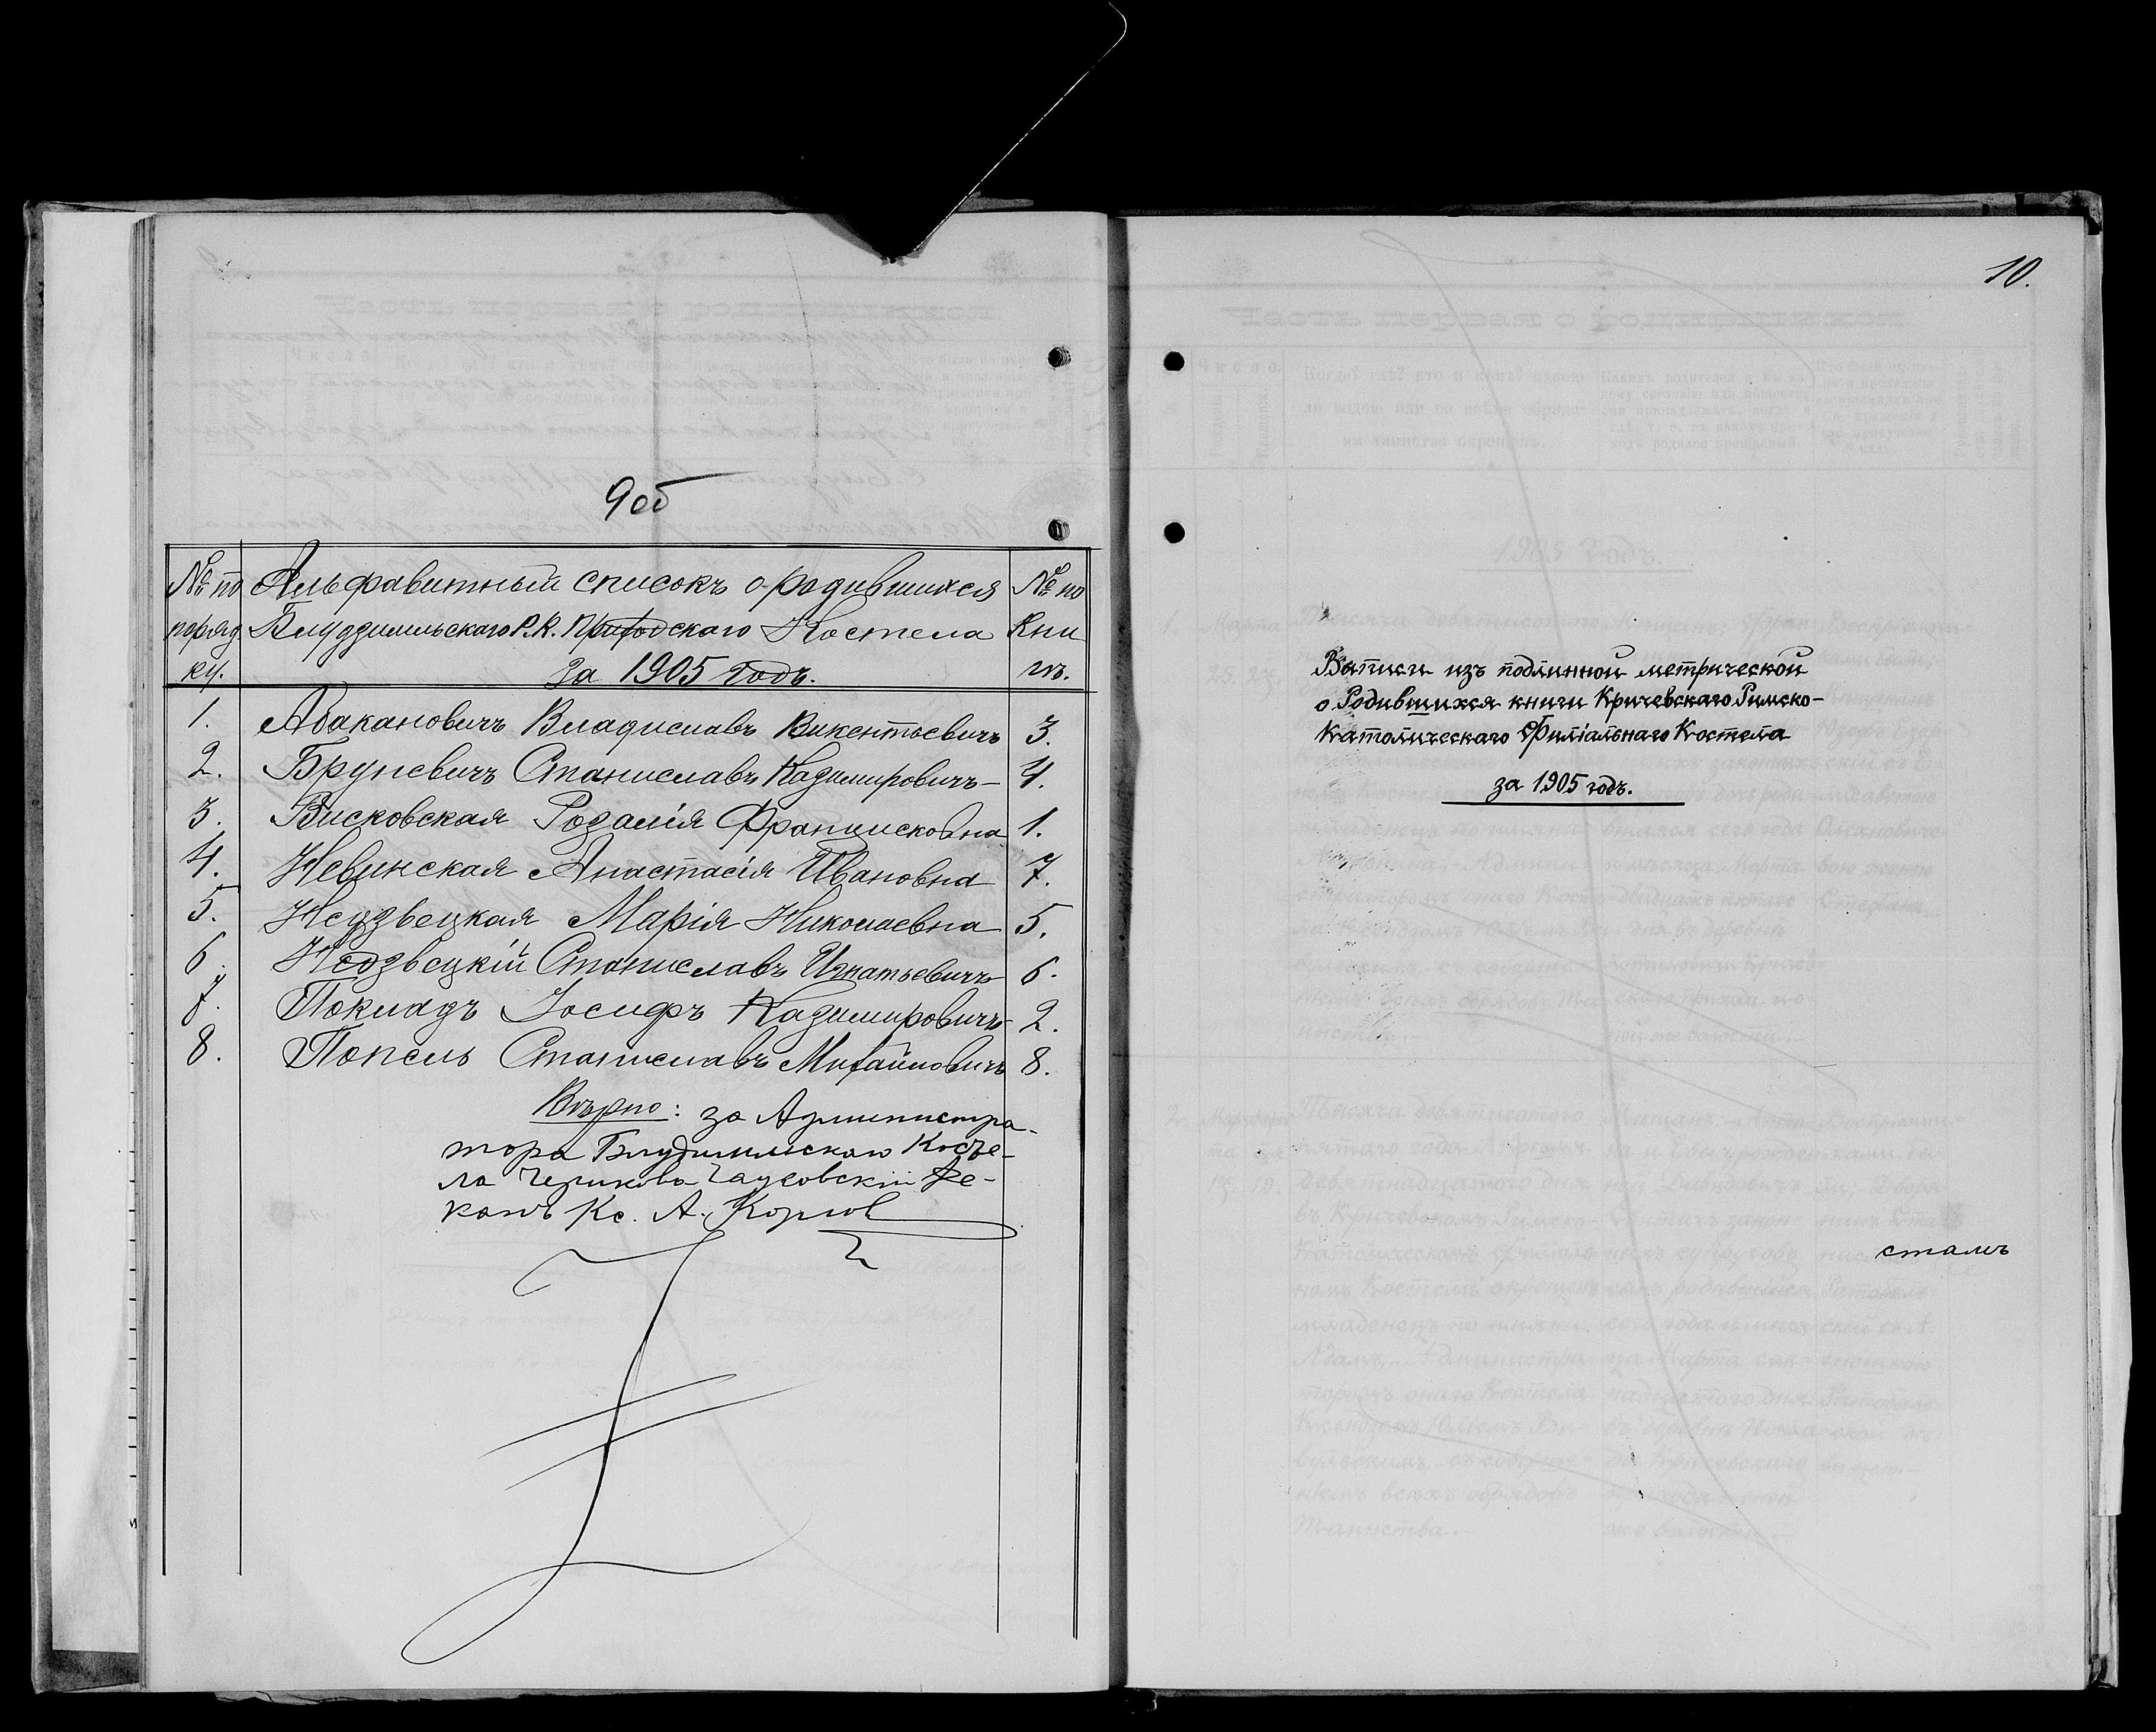 9об
№ по Альфавитный списокъ о родившихся № по
поряд Блуддимльскаго Р. К. Приходскаго Костела Кни
ку. за 1905 годъ. гѣ.
1. Абакановичъ Владиславъ Викентьевичъ 3.
2. Бруневичъ Станиславъ Казимировичъ- 4.
3. Висковская Розалія Францисковна 1.
4. Невинская Анастасія Ивановна 7.
5. Недзвецкая Марія Николаевна 5.
6. Недзвецкій Станиславъ Игнатьевичъ 6.
7. Покладъ Іосифъ Казимировичъ 2.
8. Попель Станиславъ Михайловичъ 8.
Вѣрно: за Администра-
тора Костё-
ла Чериково Чаусовскій Де-
канъ Кс. А.
10.
Выписи изъ подлинной метрической
о Родившихся книги Кричевскаго Римско-
Католическаго Филіальнаго Костела
за 1905 годъ.